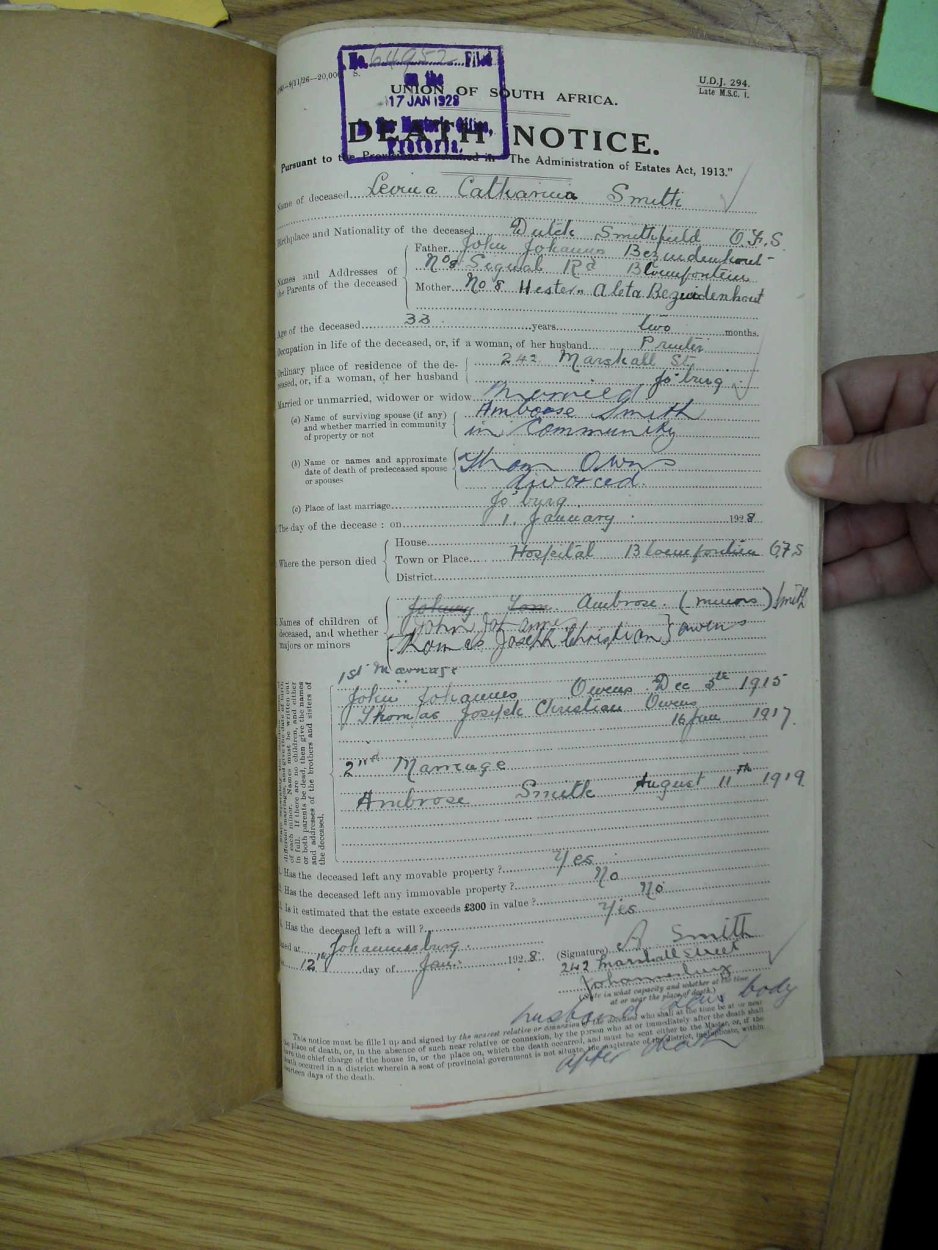 No. 64952 Filed
on the
17 JAN 1928
Master's Office,
Pretoria.
U.D.J. 294.
Late M.S.C. 1.
UNION OF SOUTH AFRICA.
DEATH NOTICE.
Pursuant to the "The Administration of Estates Act, 1913."
Name of deceased Levina Catharina Smith
Birthplace and Nationality of the deceased Dutch Smithfield O.F.S.
Names and Addresses of the Parents of the deceased
Father John Johannes Bezuidenhout
No 8 Rd Bloemfontein
Mother No 8 Hester Aleta Bezuidenhout
Age of the deceased 33 years two months.
Occupation in life of the deceased, or, if a woman, of her husband Printer
Ordinary place of residence of the deceased, or, if a woman, of her husband
242 Marshall St
Jo'burg
Married or unmarried, widower or widow Married
(a) Name of surviving spouse (if any) and whether married in community of property or not
Ambrose Smith
in Community
(b) Name or names and approximate date of death of predeceased spouse or spouses
Thom Owens
divorced.
(c) Place of last marriage Jo'burg
The day of the decease : on 1. January 1928
Where the person died
House
Town or Place Hospital Bloemfontein OFS
District
Names of children of deceased, and whether majors or minors
Johnny Tom Ambrose. (minors) Smith
John Johannes
Thomas Joseph Christian } Owens
1st Marriage
John Johannes Owens Dec 5th 1915
Thomas Joseph Christian Owens
16 Jan 1917.
2nd Marriage
Ambrose Smith August 11th 1919
of each minor. Names must be written out
in full. If there are no children, and either
or both parents be dead, then give the names
and addresses of the brothers and sisters of
the deceased.
Has the deceased left any movable property ? Yes
Has the deceased left any immovable property ? No
Is it estimated that the estate exceeds £300 in value ? No
Has the deceased left a will ? Yes
Dated at Johannesburg
12th day of Jan. 1928. (Signature) A Smith
242 Marshall Street
Johannesburg
(State in what capacity and whether at the time at or near the place of death.)
husband saw body
after death
This notice must be filled up and signed by the nearest relative or connexion of the deceased who shall at the time be at or near
the place of death, or, in the absence of such near relative or connexion, by the person who at or immediately after the death shall
have the chief charge of the house in, or the place on, which the death occurred, and must be sent either to the Master, or, if the
death occurred in a district wherein a seat of provincial government is not situate, the magistrate of the district, in duplicate, within
fourteen days of the death.